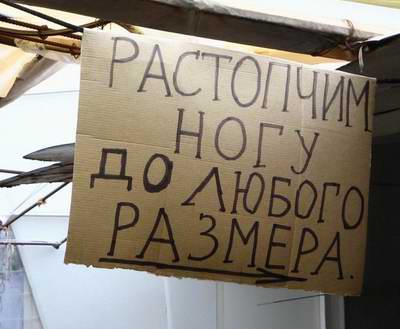 РАСТОПЧИМ
НОГУ
ДО ЛЮБОГО
РАЗМЕРА.